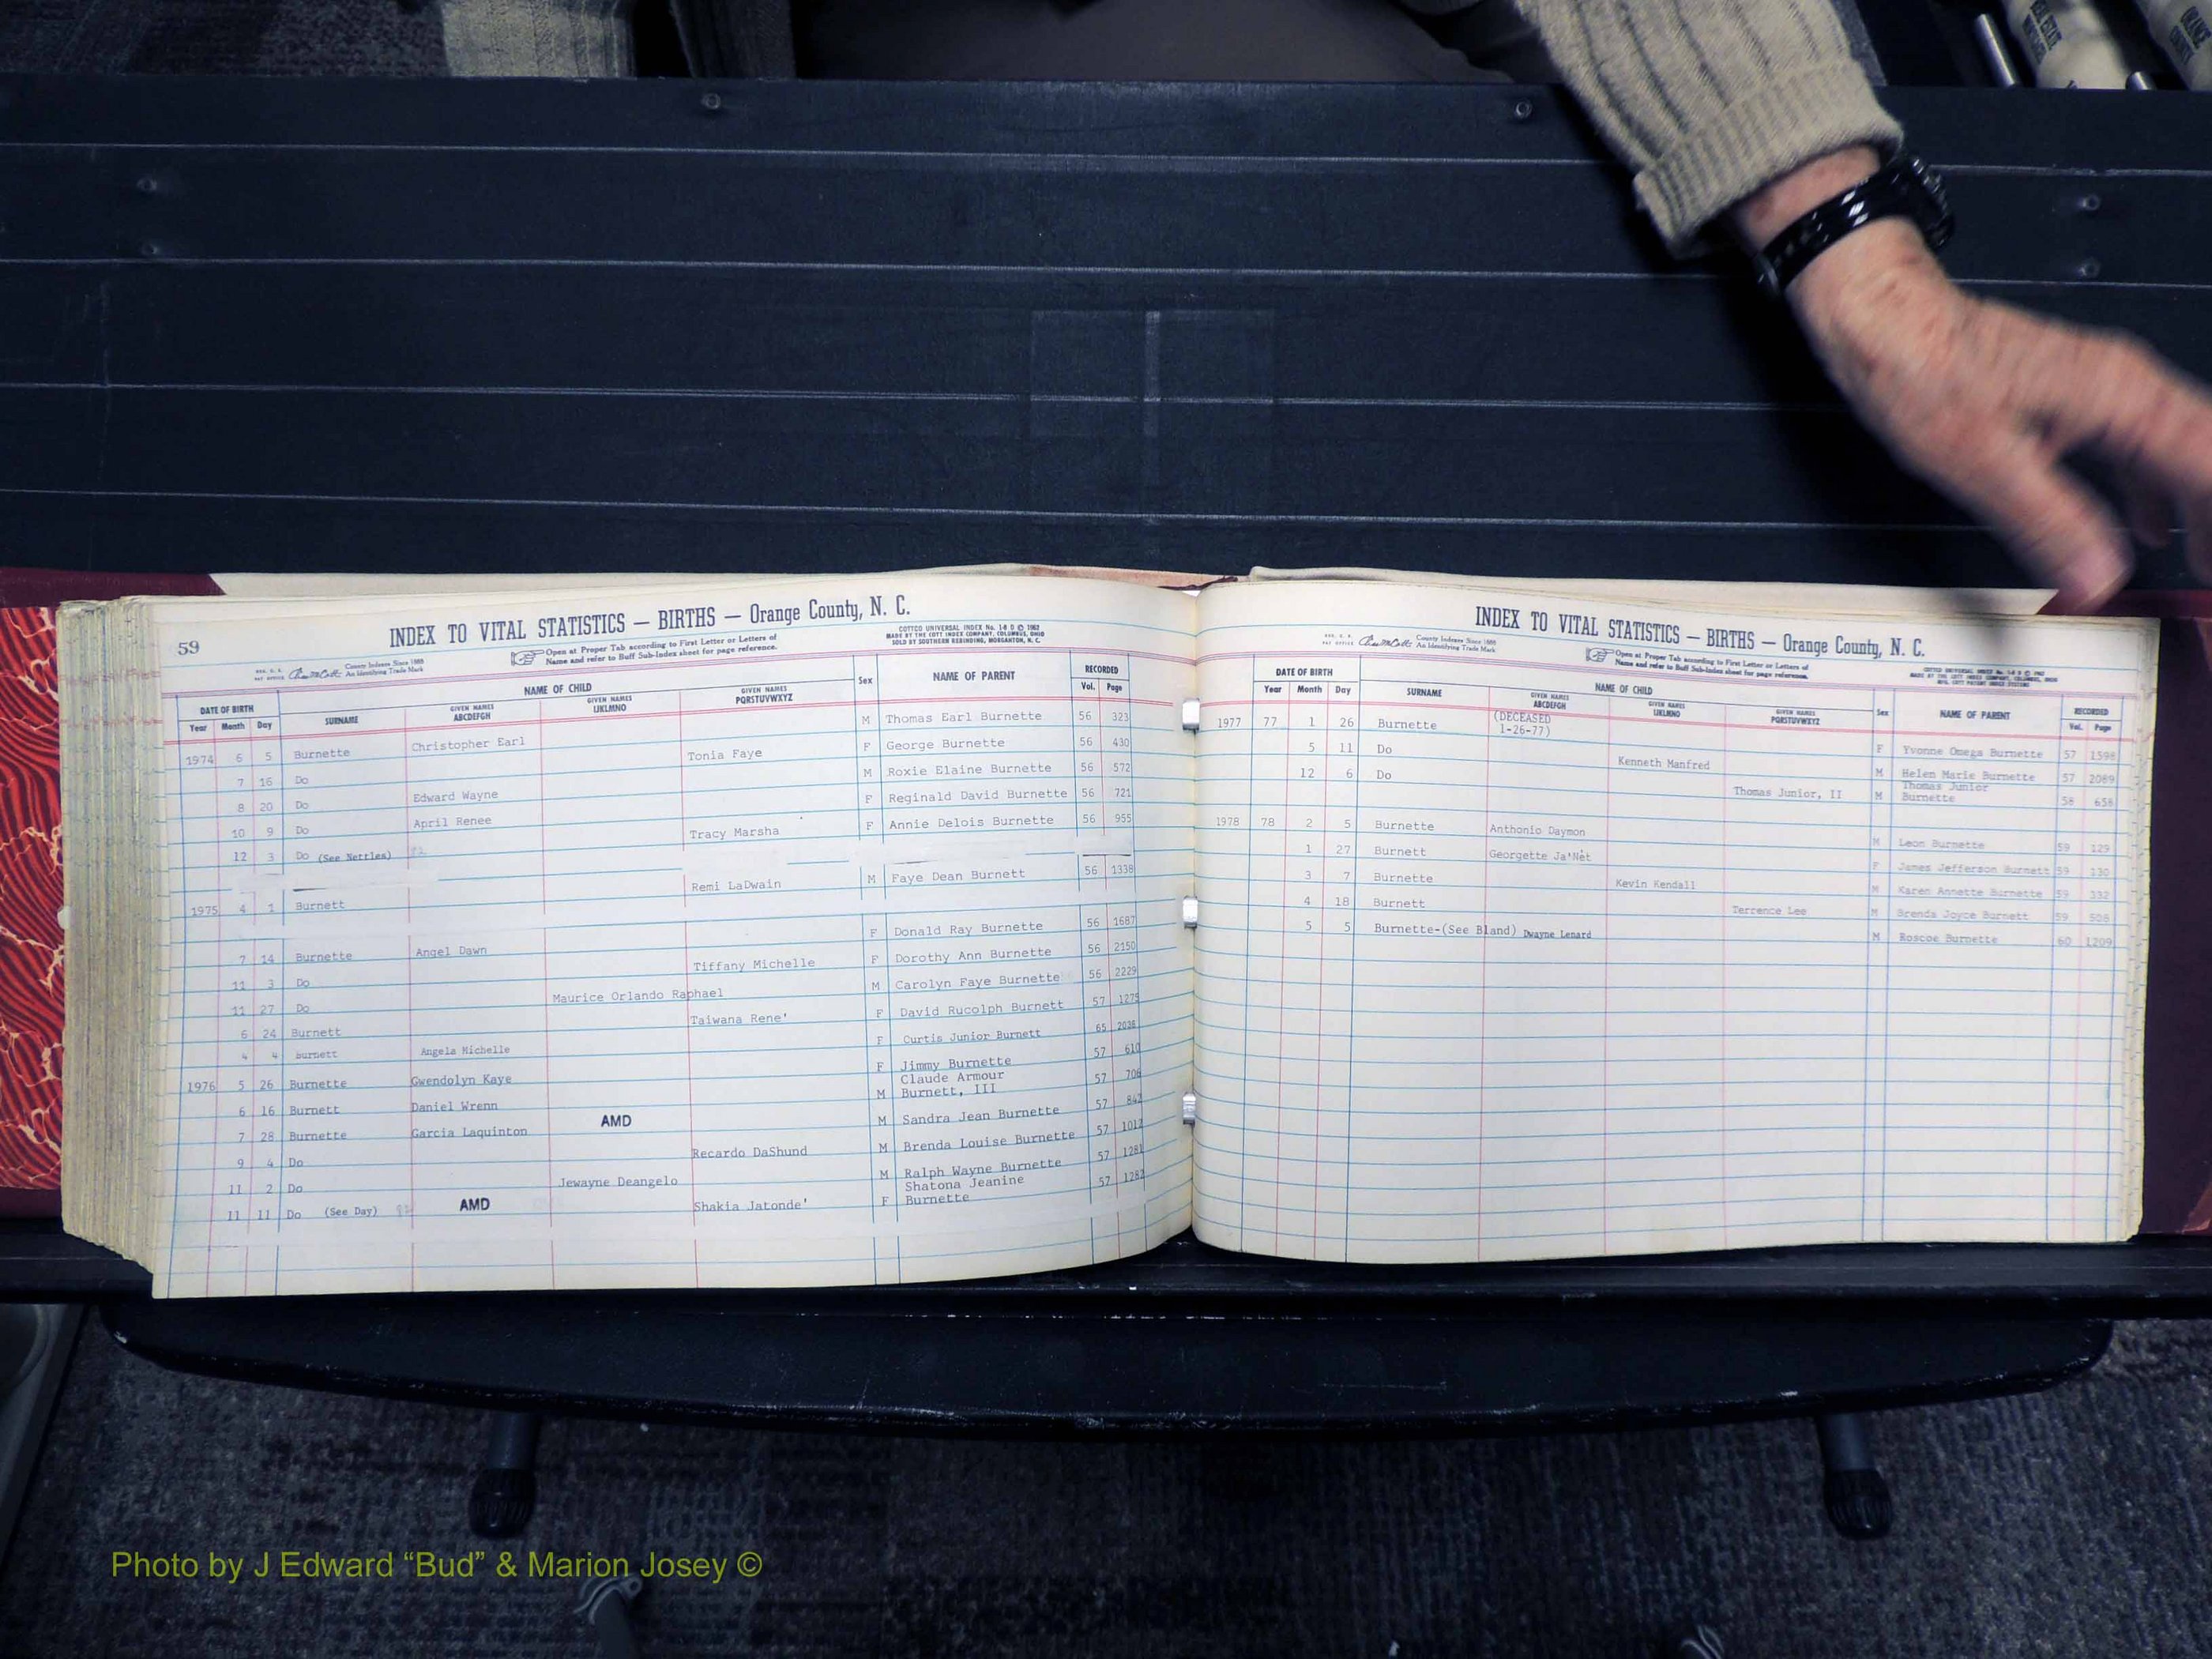 59
INDEX TO VITAL STATISTICS — BIRTHS — Orange County, N. C.
County Indexes Since 1888
An Identifying Trade Mark
Open at Proper Tab according to First Letter or Letters of
Name and refer to Buff Sub-Index sheet for page reference.
COTTCO UNIVERSAL INDEX No. 1-8 D © 1962
MADE BY THE COTT INDEX COMPANY, COLUMBUS, OHIO
SOLD BY SOUTHERN REBINDING, MORGANTON, N. C.
DATE OF BIRTH NAME OF CHILD Sex NAME OF PARENT RECORDED
Year Month Day SURNAME GIVEN NAMES ABCDEFGH GIVEN NAMES IJKLMNO GIVEN NAMES PQRSTUVWXYZ Vol. Page
1974 6 5 Burnette Christopher Earl M Thomas Earl Burnette 56 323
7 16 Do Tonia Faye F George Burnette 56 430
8 20 Do Edward Wayne M Roxie Elaine Burnette 56 572
10 9 Do April Renee F Reginald David Burnette 56 721
12 3 Do (See Nettles) Tracy Marsha F Annie Delois Burnette 56 955
1975 4 1 Burnett Remi LaDwain M Faye Dean Burnett 56 1338
7 14 Burnette Angel Dawn F Donald Ray Burnette 56 1687
11 3 Do Tiffany Michelle F Dorothy Ann Burnette 56 2150
11 27 Do Maurice Orlando Raphael M Carolyn Faye Burnette 56 2229
6 24 Burnett Taiwana Rene' F David Rucolph Burnett 57 1275
4 4 Burnett Angela Michelle F Curtis Junior Burnett 65 2036
1976 5 26 Burnette Gwendolyn Kaye F Jimmy Burnette 57 610
6 16 Burnett Daniel Wrenn M Claude Armour Burnett, III 57 706
7 28 Burnette Garcia Laquinton AMD M Sandra Jean Burnette 57 842
9 4 Do Recardo DaShund M Brenda Louise Burnette 57 1017
11 2 Do Jewayne Deangelo M Ralph Wayne Burnette 57 1281
11 11 Do (See Day) AMD Shakia Jatonde' F Shatona Jeanine Burnette 57 1282
INDEX TO VITAL STATISTICS — BIRTHS — Orange County, N. C.
County Indexes Since 1888
An Identifying Trade Mark
Open at Proper Tab according to First Letter or Letters of
Name and refer to Buff Sub-Index sheet for page reference.
DATE OF BIRTH NAME OF CHILD Sex NAME OF PARENT RECORDED
Year Month Day SURNAME GIVEN NAMES ABCDEFGH GIVEN NAMES IJKLMNO GIVEN NAMES PQRSTUVWXYZ Vol. Page
1977 77 1 26 Burnette (DECEASED 1-26-77) F Yvonne Omega Burnette 57 1598
5 11 Do Kenneth Manfred M Helen Marie Burnette 57 2089
12 6 Do Thomas Junior, II M Thomas Junior Burnette 58 658
1978 78 2 5 Burnette Anthonio Daymon M Leon Burnette 59 129
1 27 Burnett Georgette Ja'Net F James Jefferson Burnett 59 130
3 7 Burnette Kevin Kendall M Karen Annette Burnette 59 332
4 18 Burnett Terrence Lee M Brenda Joyce Burnett 59 508
5 5 Burnette-(See Bland) Dwayne Lenard M Roscoe Burnette 60 1209
Photo by J Edward “Bud” & Marion Josey ©